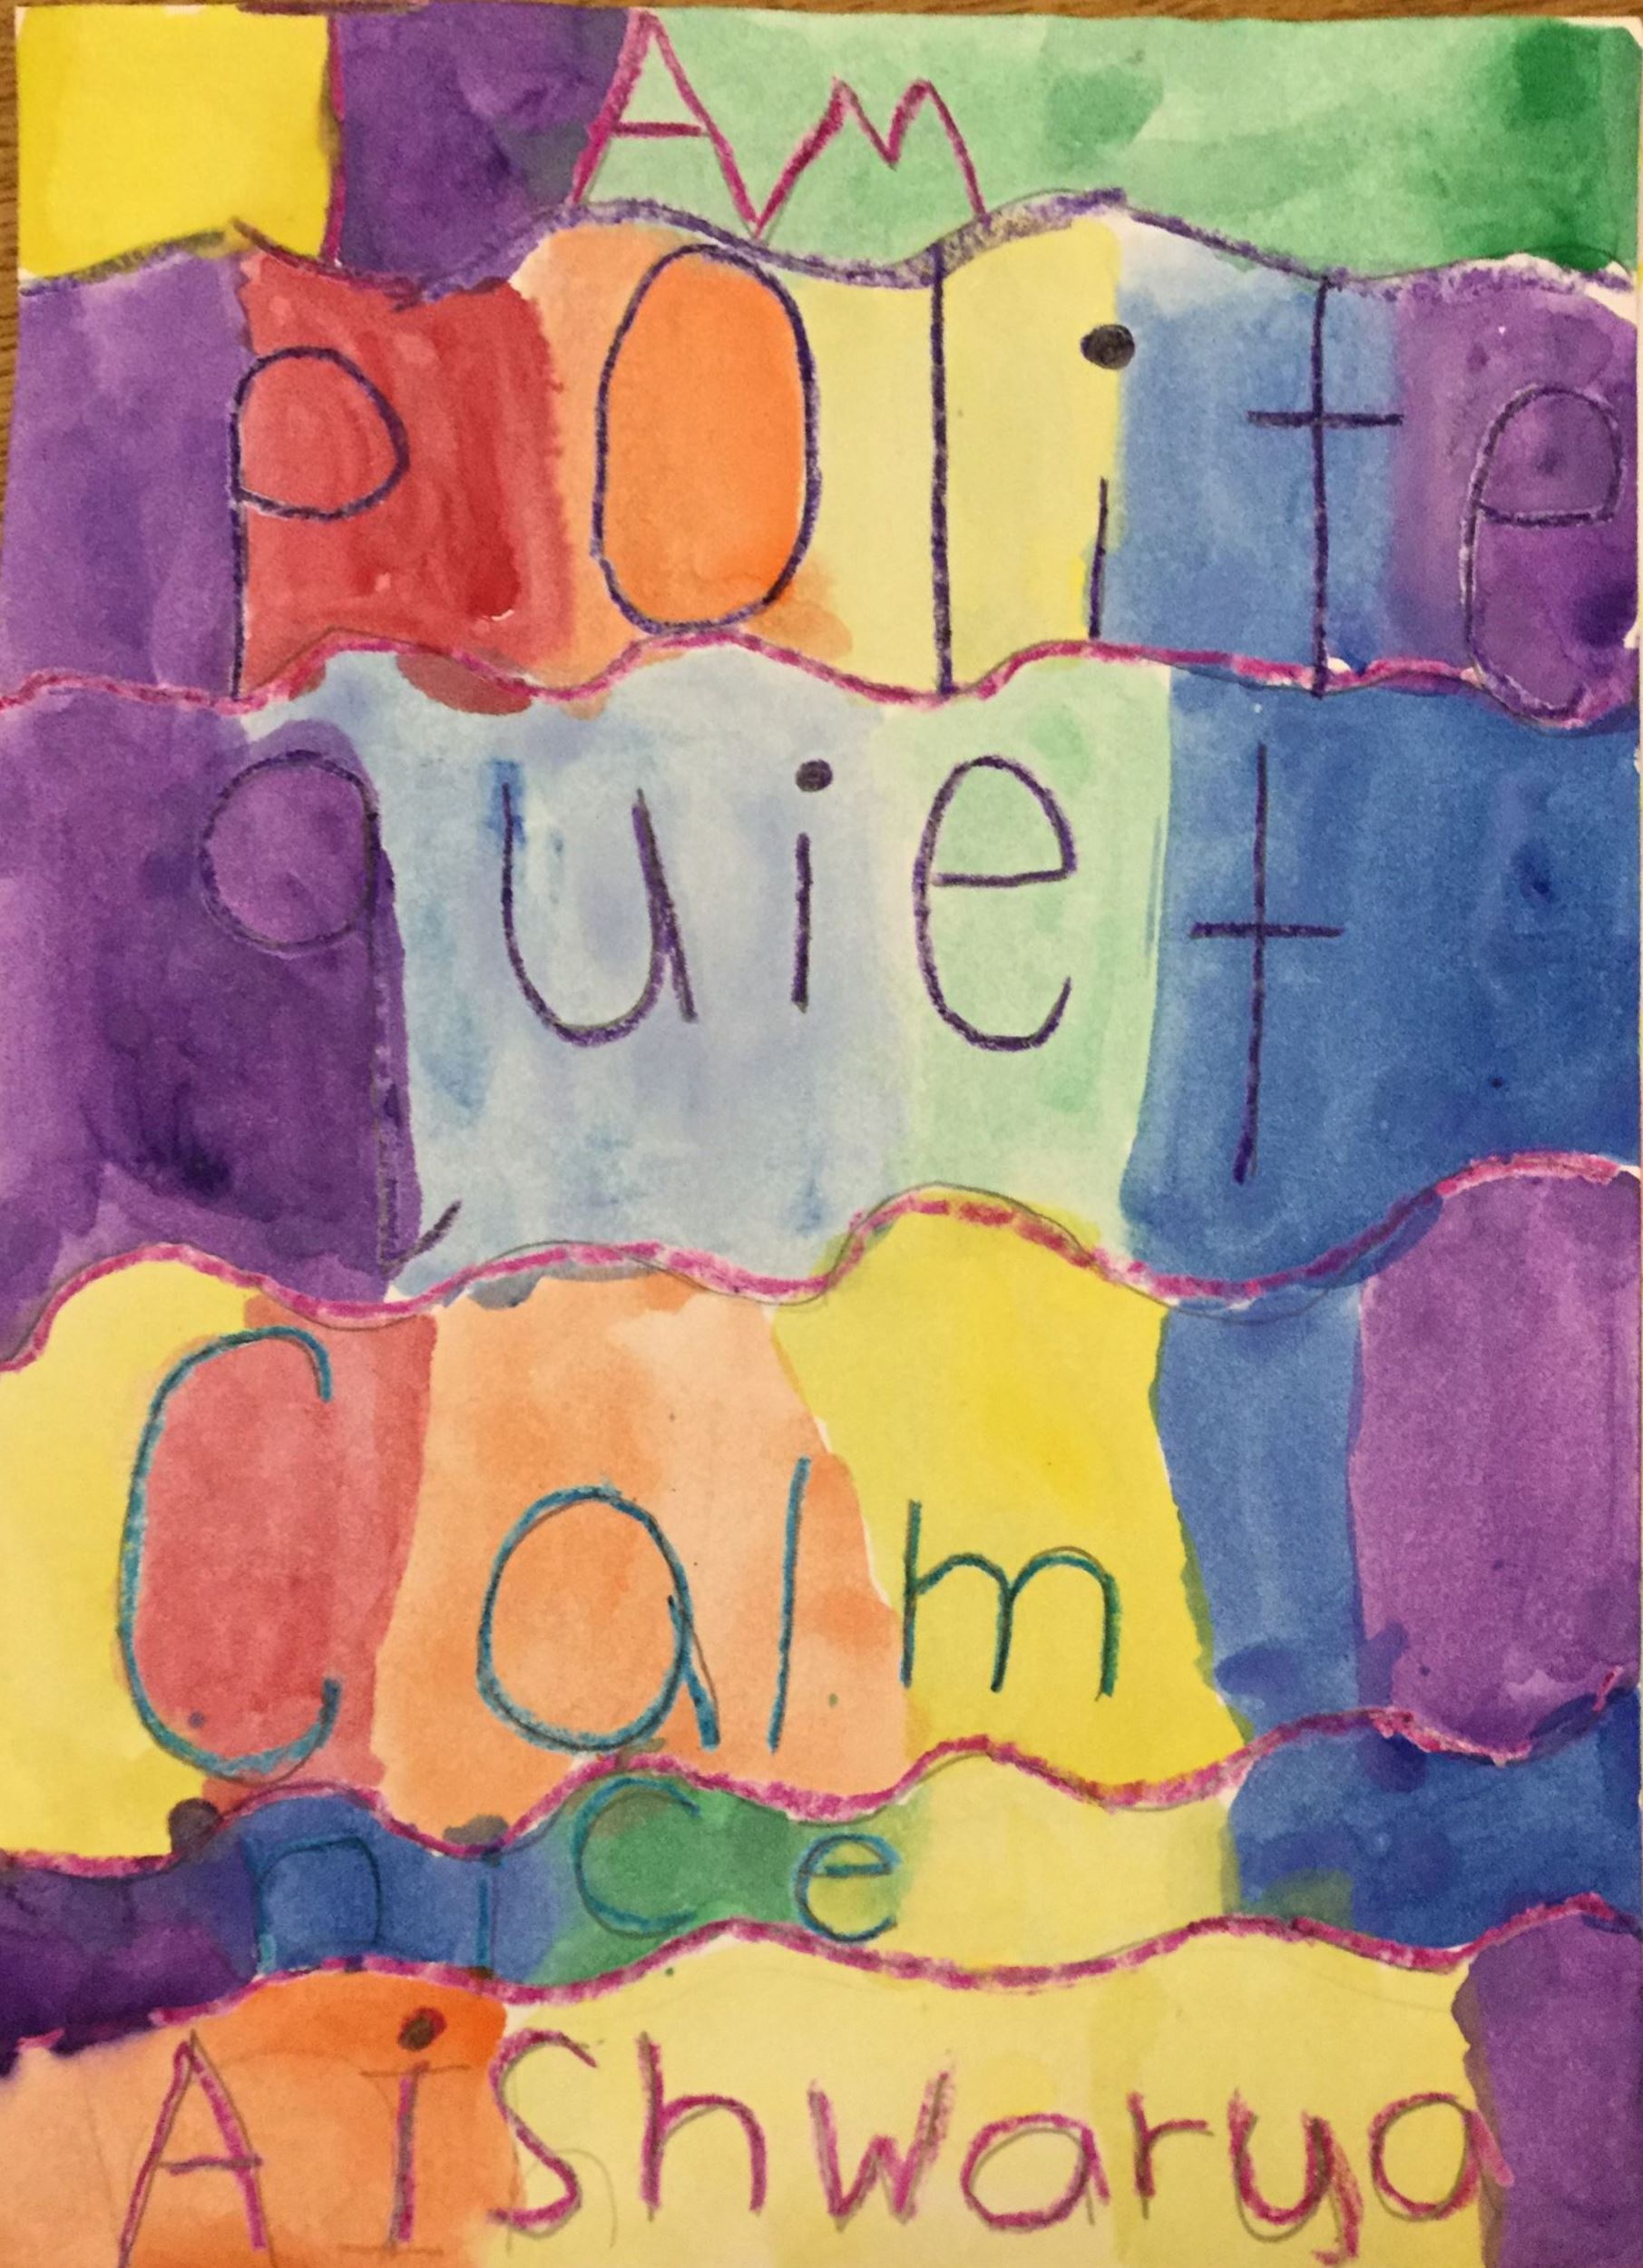 AM
polite
quiet
Calm
nice
Aishwarya